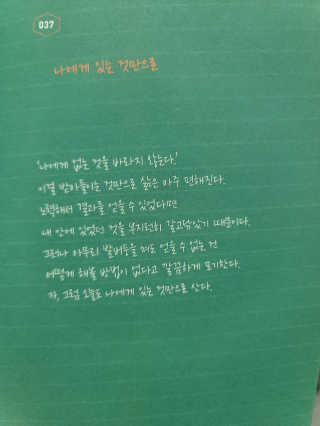 037
나에게 있는 것만으로
'나에게 없는 것을 바라지 않는다.'
이걸 받아들이는 것만으로 삶은 아주 편해진다.
노력해서 결과를 얻을 수 있었다면
내 안에 있었던 것을 부지런히 갈고닦았기 때문이다.
그러나 아무리 발버둥을 쳐도 얻을 수 없는 건
어떻게 해볼 방법이 없다고 깔끔하게 포기한다.
자, 그럼 오늘도 나에게 있는 것만으로 산다.